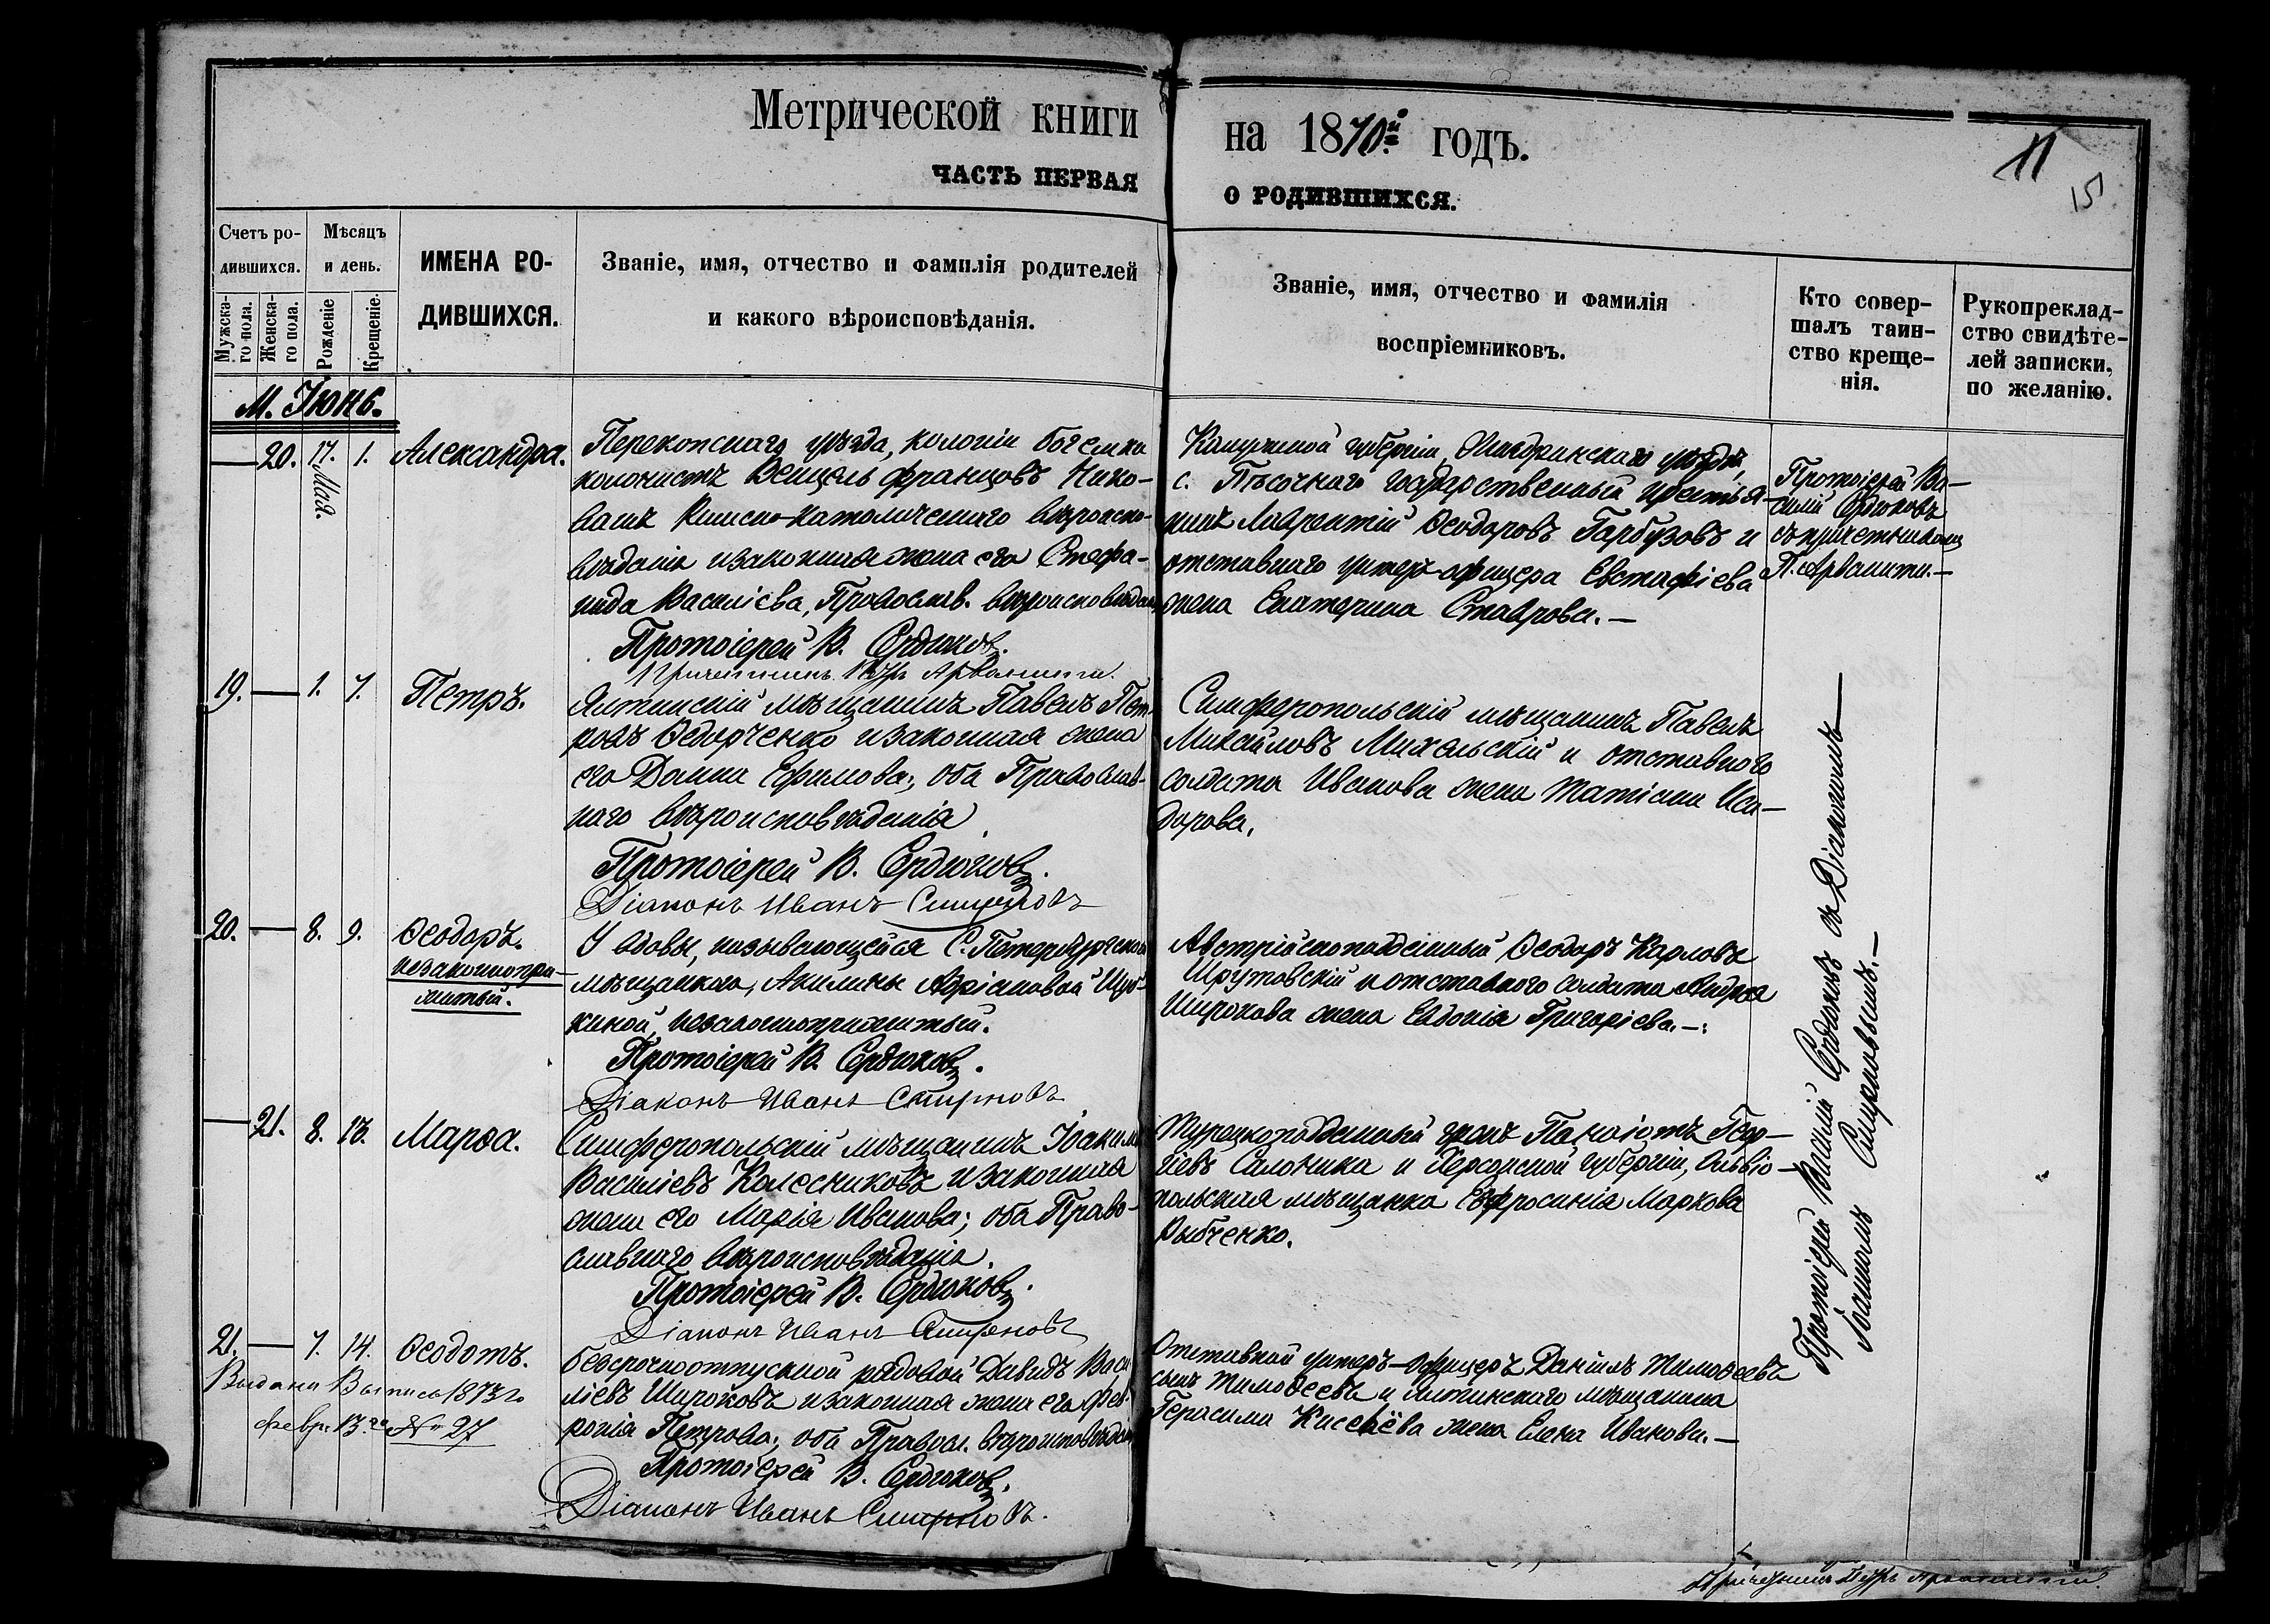 Метрической книги
на 1870й годъ.
11
15
ЧАСТЬ ПЕРВАЯ
О РОДИВШИХСЯ.
Счетъ ро-
дившихся.
Мужска-
го пола.
Женска-
го пола.
Мѣсяцъ
и день.
Рожденіе
Крещеніе.
ИМЕНА РО-
ДИВШИХСЯ.
Званіе, имя, отчество и фамилія родителей
и какого вѣроисповѣданія.
Званіе, имя, отчество и фамилія
воспріемниковъ.
Кто совер-
шалъ таин-
ство креще-
нія.
Рукоприклад-
ство свидѣте-
лей записки,
по желанію.
М. Іюнь.
20. 17. Мая. 1. Александра.
Перекопскаго уѣзда, колоніи Богемка
колонистъ Венцель Францовъ Нико-
Римско-католическаго вѣроиспо-
вѣданія и законная жена его Стефа-
нида Василіева, Православ. вѣроисповѣдан.
Протоіерей В. Сердюковъ.
Причетникъ Петръ Арванити.
Калужской губерніи, Жиздринскаго уѣзда,
с. Пѣсочнаго государственный крестья-
нинъ Лаврентій Ѳеодоровъ Гарбузовъ и
отставнаго унтеръ-офицера Евстафіева
жена Екатерина Ставрова.—
Протоіерей Ва-
силій Сердюковъ
съ причетникомъ
П. Арванити.—
19. — 1. 7. Петръ.
Ялтинскій мѣщанинъ Павелъ Пет-
ровъ Ѳедорченко и законная жена
его Домна Ефимова, оба Православ-
наго вѣроисповѣданія
Протоіерей В. Сердюковъ.
Діаконъ Иванъ Смирновъ
Симферопольскій мѣщанинъ Павелъ
Михайловъ Михельскій и отставнаго
солдата Иванова жена Татіана Иси-
дорова.
20. — 8. 9. Ѳеодоръ.
незаконнопри-
житый.
У вдовы, называющейся С. Петербургскою
мѣщанкою, Акилины Адріановой Щу-
киной, незаконноприжитый.
Протоіерей В. Сердюковъ.
Діаконъ Иванъ Смирновъ
Австрійскоподданный Ѳеодоръ Карловъ
Шрутовскій и отставнаго солдата Андрея
Широкова жена Евдокія Григоріева.—
— 21. 8. 13. Марѳа.
Симферопольскій мѣщанинъ Іоакимъ
Василіевъ Колесниковъ и законная
жена его Марья Иванова; оба Право-
славнаго вѣроисповѣданія.
Протоіерей В. Сердюковъ.
Діаконъ Иванъ Смирновъ
Турецкоподданный грекъ Панаіотъ Геор-
гіевъ Салоника и Херсонской губерніи, Ольвіо-
польская мѣщанка Евфросинія Маркова
Рыбченко.
21. — 7. 14. Ѳеодотъ.
Выдана Выпись 1873 г.
февр. 13 го № 27
Безсрочноотпускной рядовой Давидъ Васи-
ліевъ Широковъ и законная жена его Фев-
ронія Петрова; оба Правосл. вѣроисповѣдан.
Протоіерей В. Сердюковъ.
Діаконъ Иванъ Смирновъ.
Отставной унтеръ-офицеръ Даніилъ Тимоѳеевъ
сынъ Тимоѳеевъ и Ялтинскаго мѣщанина
Герасима Киселёва жена Елена Иванова.—
Протоіерей Василій Сердюковъ съ Діакономъ
Іоанномъ Смирновымъ.—
Причетникъ Петръ Арванити.